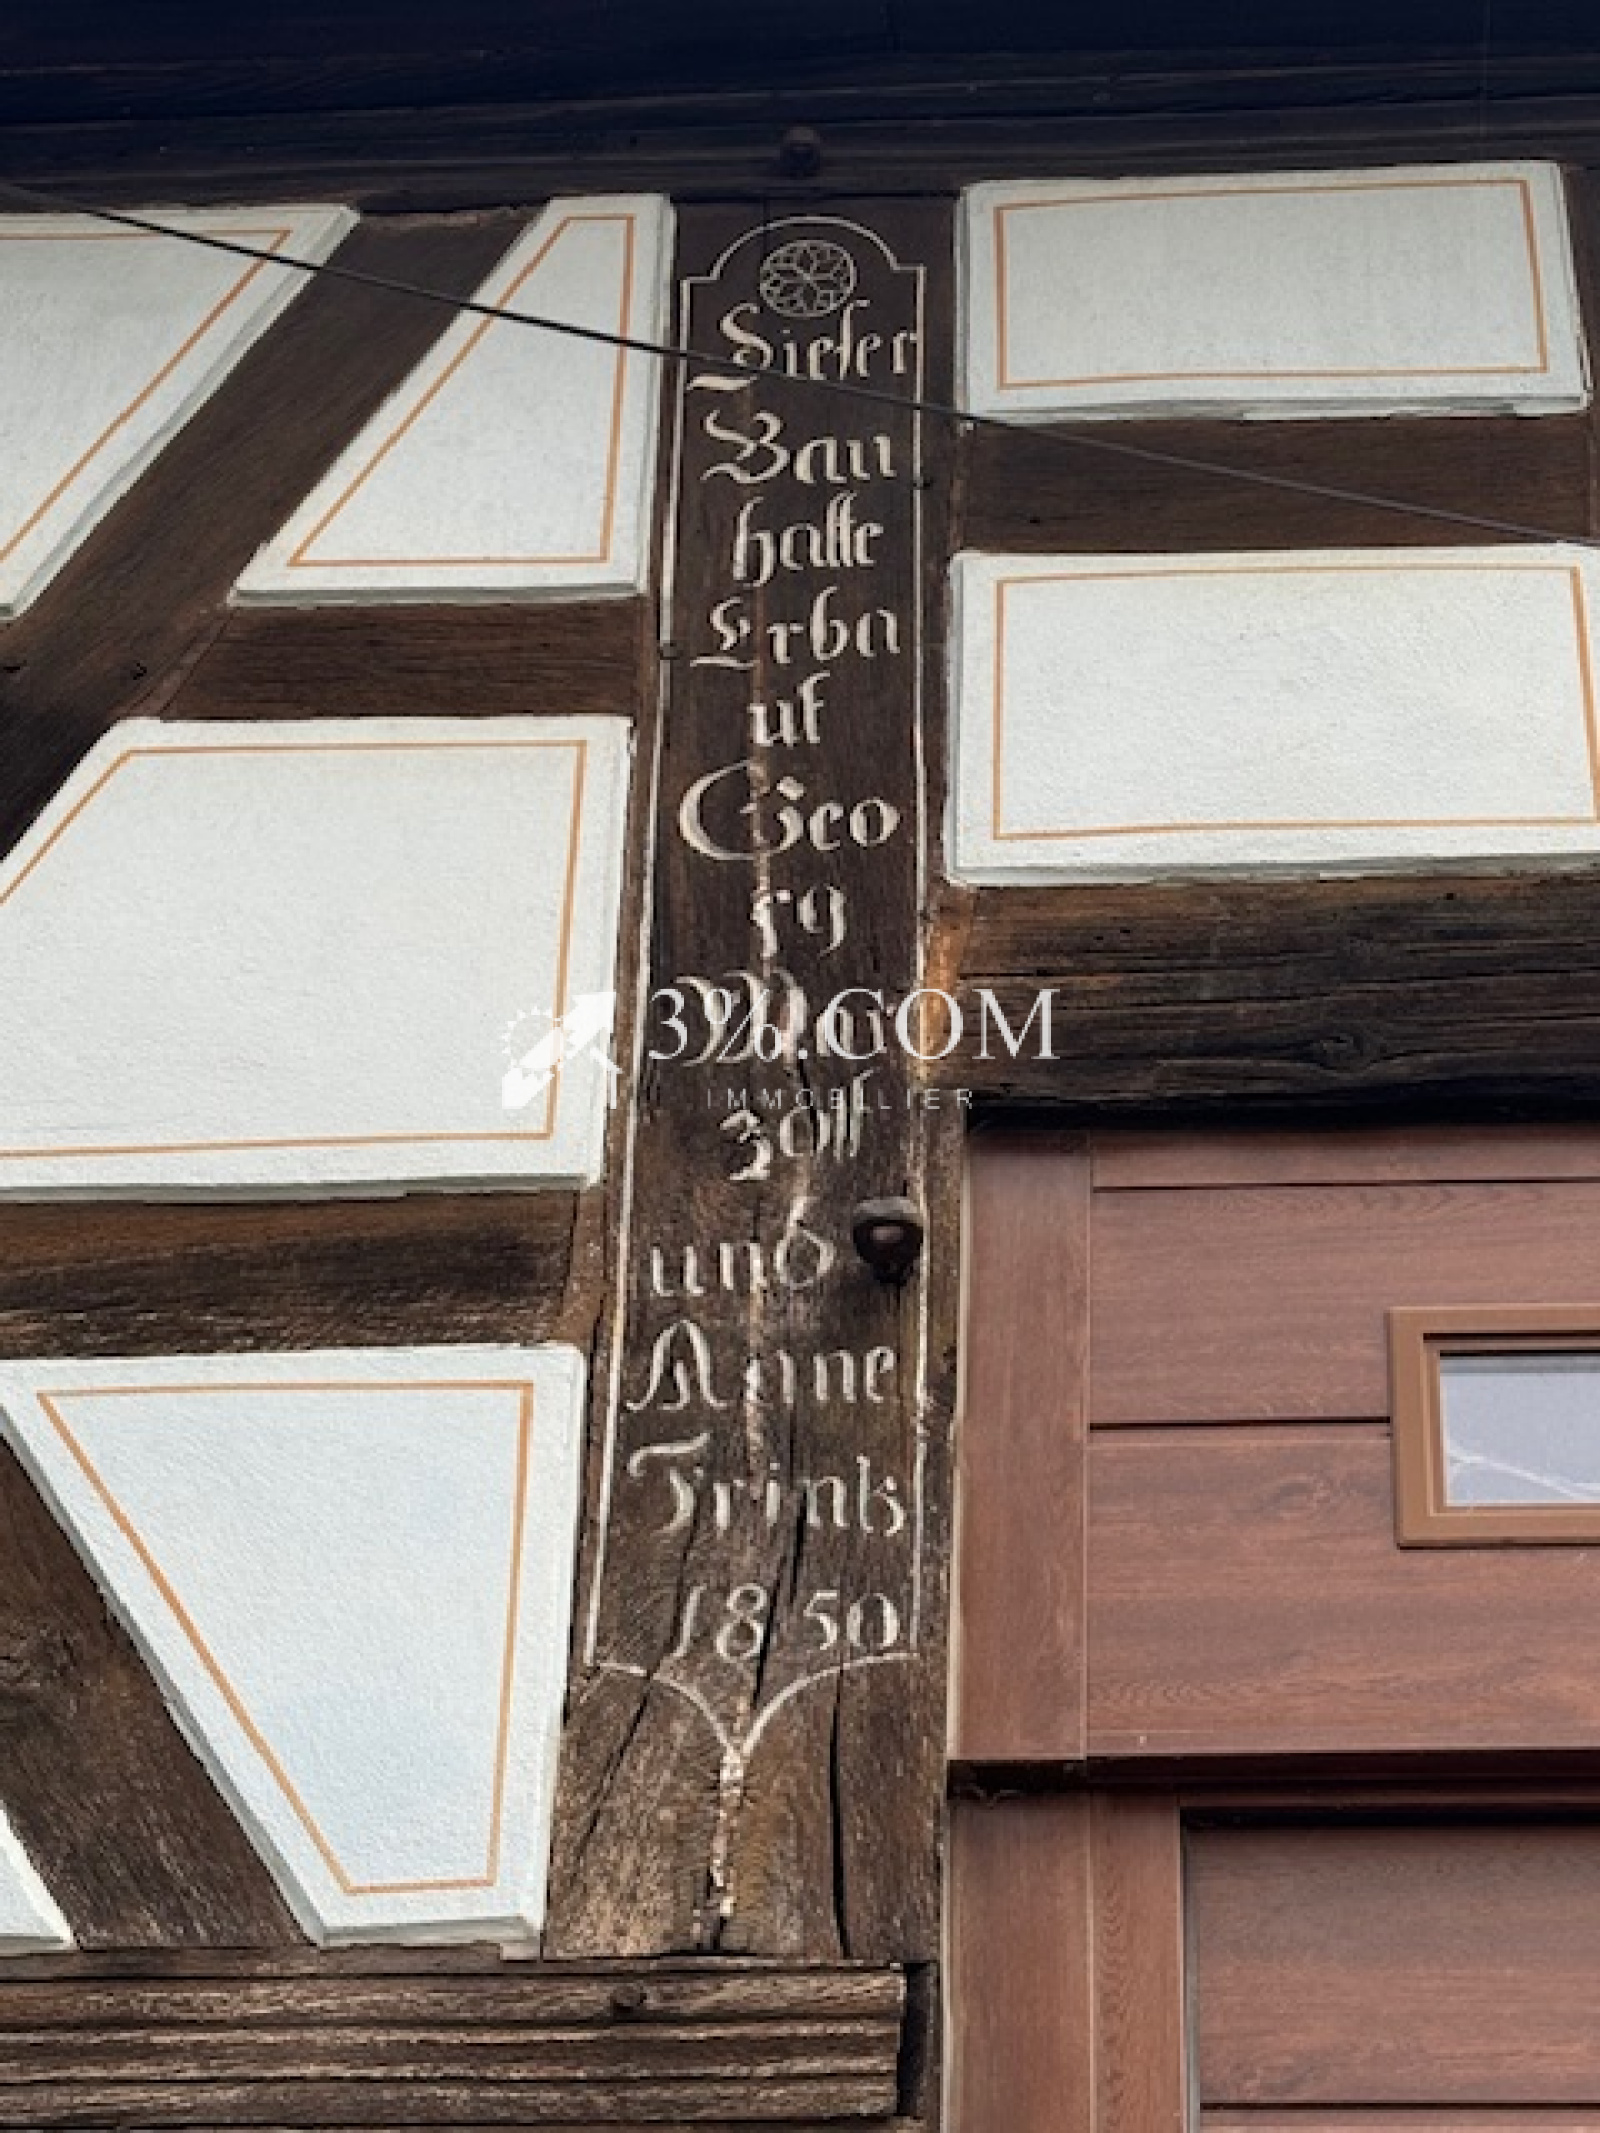 Dieser
Bau
hatte
Erba
ut
Geo
rg
Mar
zolf
und
Anne
Trink
1850
3%.COM
IMMOBILIER